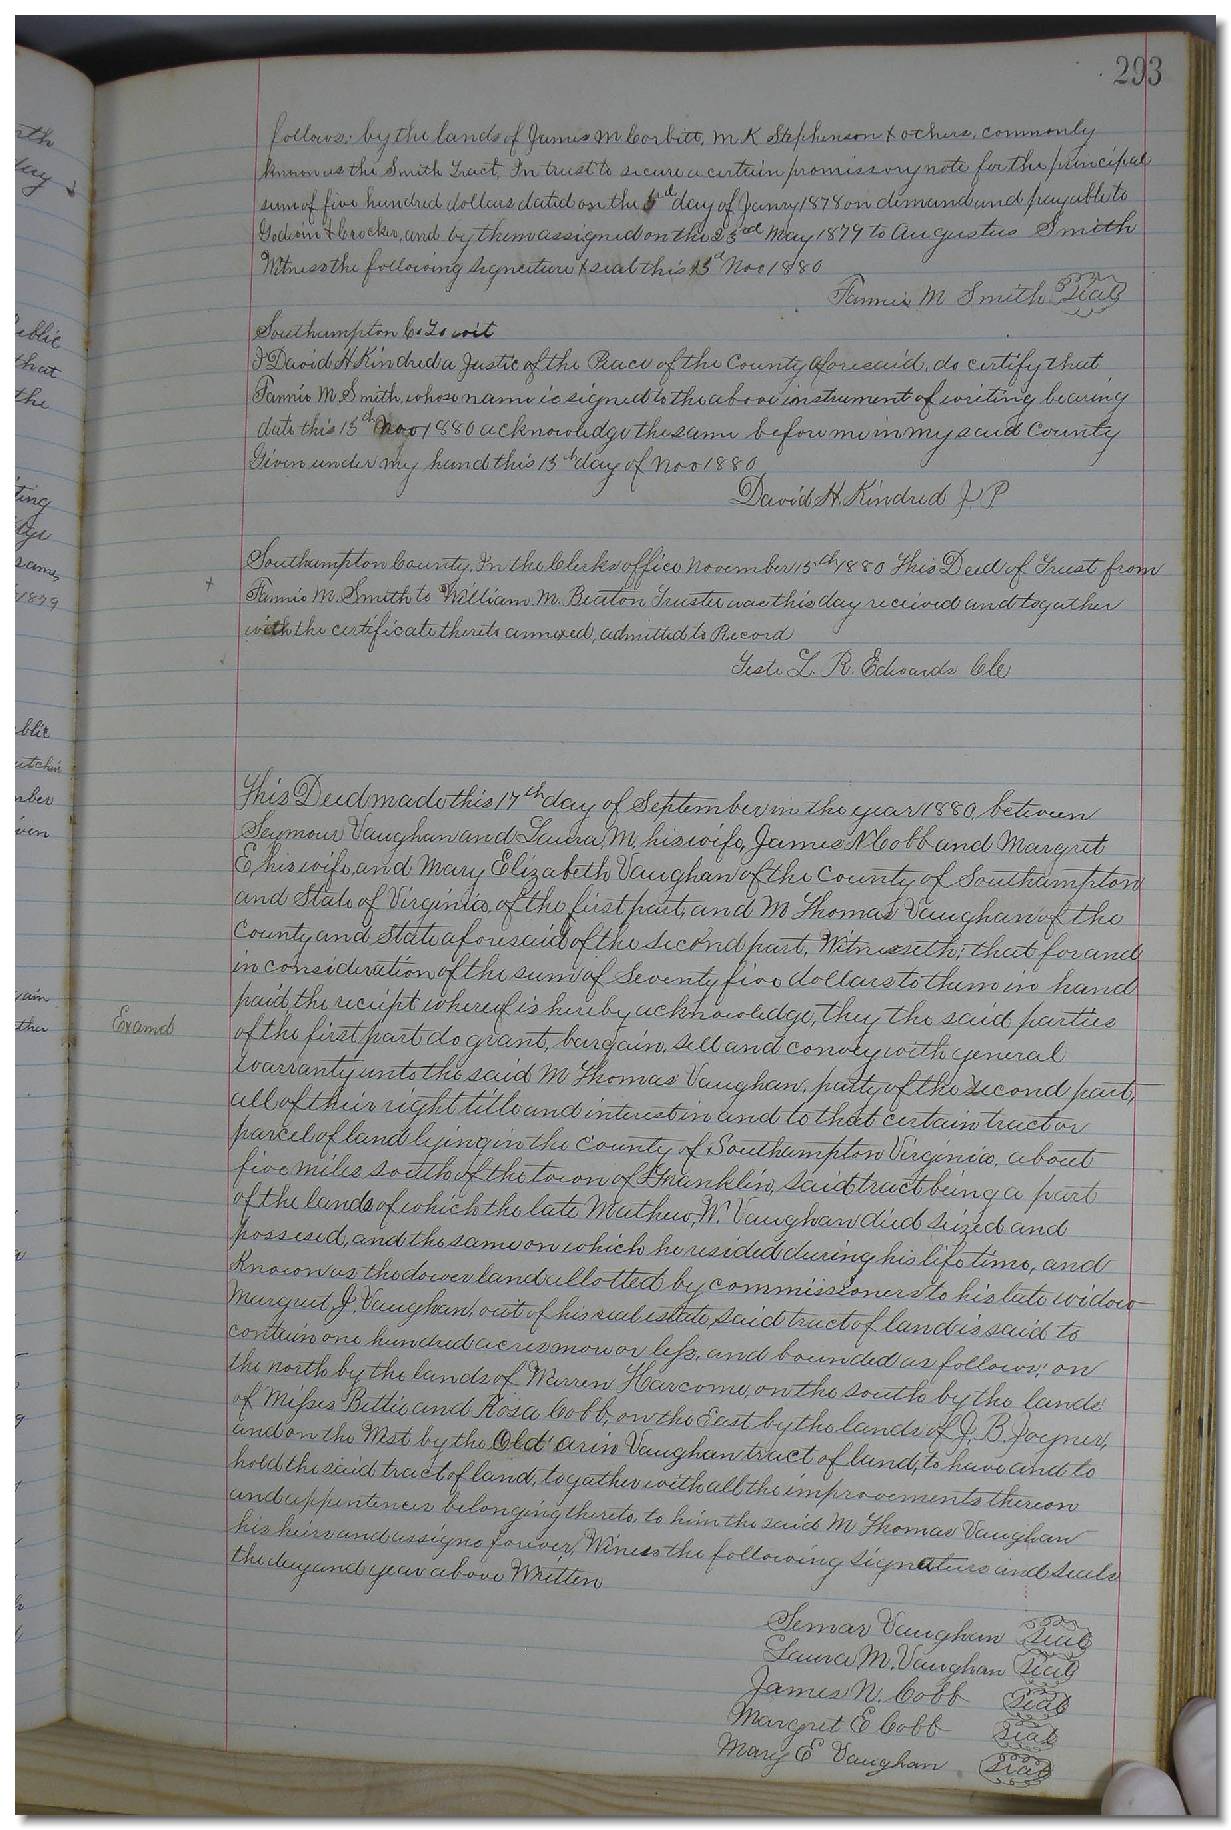 293
follows; by the lands of James M Corbitt, M K Stephenson & others, commonly
known as the Smith Tract, In trust to secure a certain promissory note for the principal
sum of five hundred dollars dated on the day of Janry 1878 on demand and payable to
Godwin & Crocker, and by them assigned on the 23rd May 1879 to Augustus Smith
Witness the following signature & seal this 15th Nov 1880
Fannie M Smith Seal
Southampton Co To wit
I David H Kindred a Justic of the Peace of the County aforesaid, do certify that
Fannie M Smith, whose name is signed to the above instrument of writing bearing
date this 15th Nov 1880 acknowledge the same before me in my said County
Given under my hand this 15th day of Nov 1880
David H. Kindred J. P.
Southampton County, In the Clerks office November 15th 1880 This Deed of Trust from
Fannie M. Smith to William M. Beaton Trustee was this day received and togather
with the certificate thereto annexed, admitted to Record
Teste L. R. Edwards Clk
This Deed made this 17th day of September in the year 1880, between
Seymour Vaughan and Laura, M. his wife, James N Cobb and Margret
E, his wife, and Mary Elizabeth Vaughan of the County of Southampton
and State of Virginia, of the first part, and M Thomas Vaughan of the
County and State aforesaid of the second part, Witnesseth; that for and
in consideration of the sum of Seventy five dollars to them in hand
paid the reciept whereof is hereby acknowledge, they the said parties
of the first part do grant, bargain, sell and convey with general
warranty unto the said M Thomas Vaughan, party of the second part,
all of their right title and interest in and to that certain tract or
parcel of land lying in the County of Southampton Virginia, about
five miles south of the town of Franklin, said tract being a part
of the lands of which the late Mathew, W. Vaughan died seized and
possesed, and the same on which he resided during his life time, and
Known as the dower land allotted by commissioners to his late widow
Margret, J. Vaughan, out of his real estate, said tract of land is said to
contain one hundred acres more or less, and bounded as follows; on
the north by the lands of Warren Harcome, on the south by the lands
of Misses Bettie and Rosa Cobb, on the East by the lands of J. B. Joyner,
and on the West by the Old Vaughan tract of land, to have and to
hold the said tract of land, togather with all the improvements thereon
and appentences belonging thereto, to him the said M Thomas Vaughan
his heirs and assigns forever, Winess the following signatures and seals
the day and year above Written
Semor Vaughan Seal
Laura M. Vaughan Seal
James N. Cobb Seal
Margret E Cobb Seal
Mary E Vaughan Seal
Examd